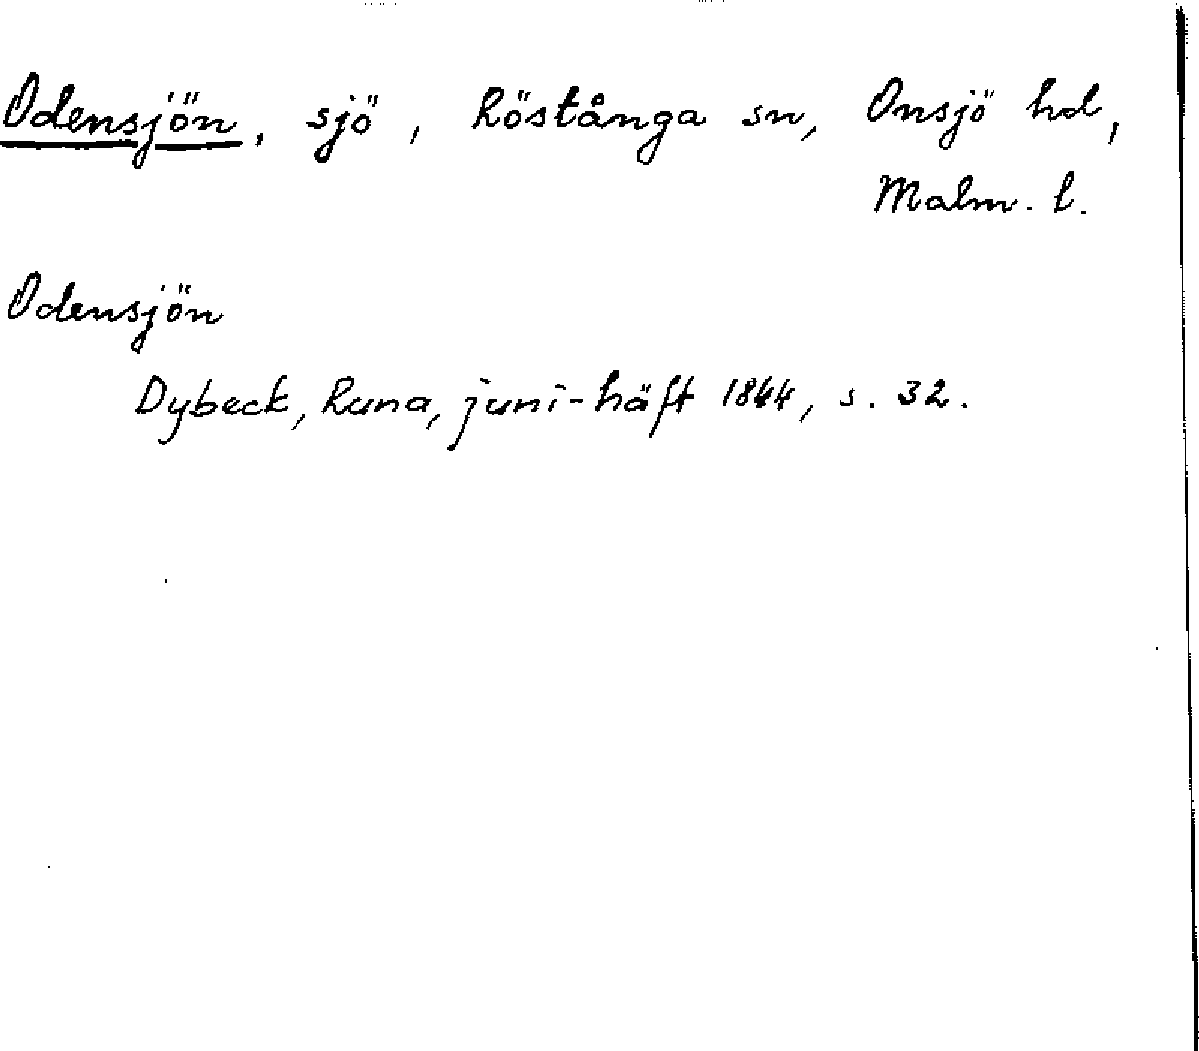 Odensjön, sjö, Röstånga sn, Onsjö hd,
Malm. l.
Odensjön
Dybeck, Runa, juni-häft 1844, s. 32.